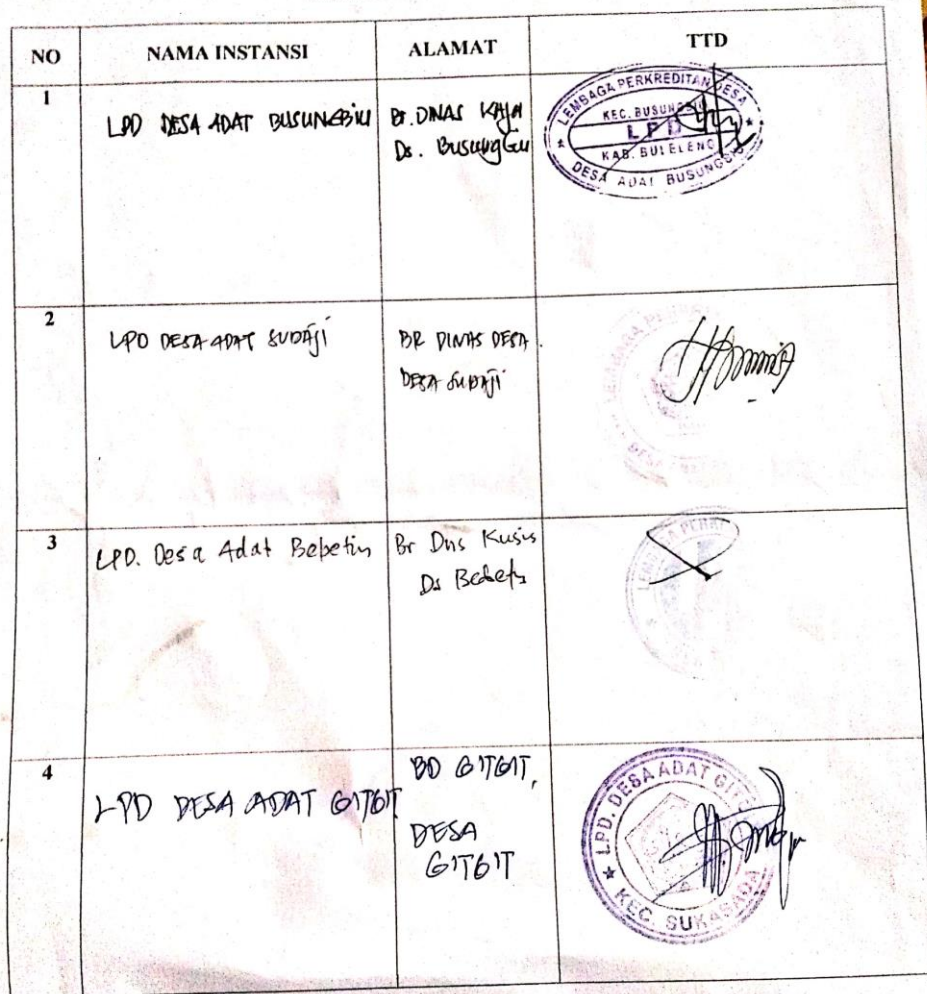 NO NAMA INSTANSI ALAMAT TTD
1
LPD DESA ADAT BUSUNGBIU
Br. DINAS KAJA
Ds. Busungbiu
LEMBAGA PERKREDITAN DESA
KEC. BUSUNGBIU
LPD
KAB. BULELENG
DESA ADAT BUSUNGBIU
2
LPD DESA ADAT SUDAJI
BR DINAS DESA
DESA SUDAJI
LEMBAGA PERKR
DESA
3
LPD. Desa Adat Bebetin
Br Dns Kusis
Ds Bebetin
LEMBAGA PERKR
4
LPD DESA ADAT GITGIT
BD GITGIT,
DESA
GITGIT
LPD. DESA ADAT GITGIT
KEC. SUKASADA